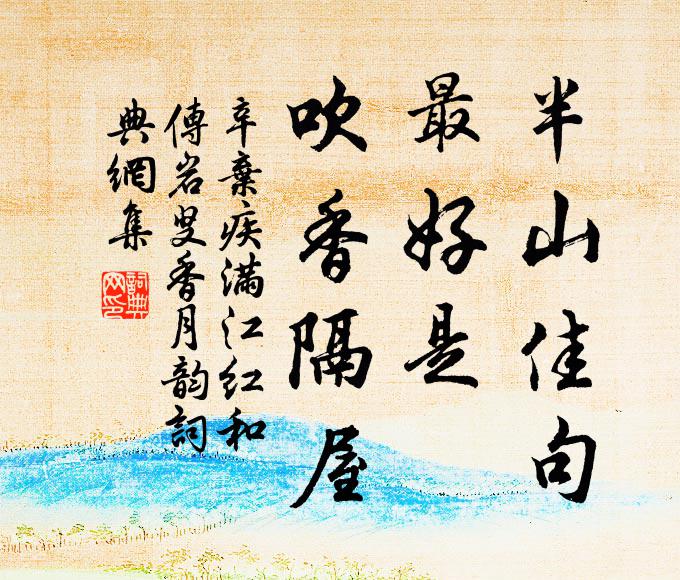 半山佳句
最好是
吹香隔屋
辛棄疾满江红和
傳岩叟香月韵詞
典網集
詞典
网印